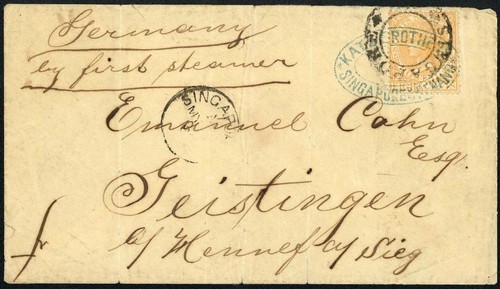 Germany
by first steamer
KAT
ROTH
SINGAPORE
SINGAP
Emanuel Cohn
Esq.
Geistingen
b/ Hennef a/ Sieg